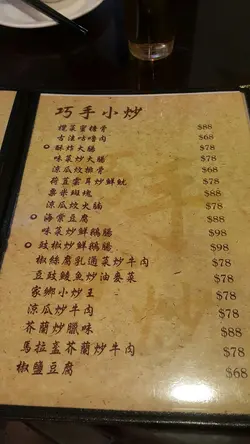 巧手小炒
欖菜蜜糖骨 $88
古法咕嚕肉 $68
酥炸大腸 $78
味菜炒大腸 $78
涼瓜炆排骨 $68
荷蘭雲耳炒鮮魷 $78
粟米斑塊 $88
涼瓜炆火腩 $78
海棠豆腐 $88
味菜炒鮮鵝腸 $98
豉椒炒鮮鵝腸 $98
椒絲腐乳通菜炒牛肉 $78
豆豉鯪魚炒油麥菜 $78
家鄉小炒王 $78
涼瓜炒牛肉 $78
芥蘭炒臘味 $88
馬拉盞芥蘭炒牛肉 $78
椒鹽豆腐 $68